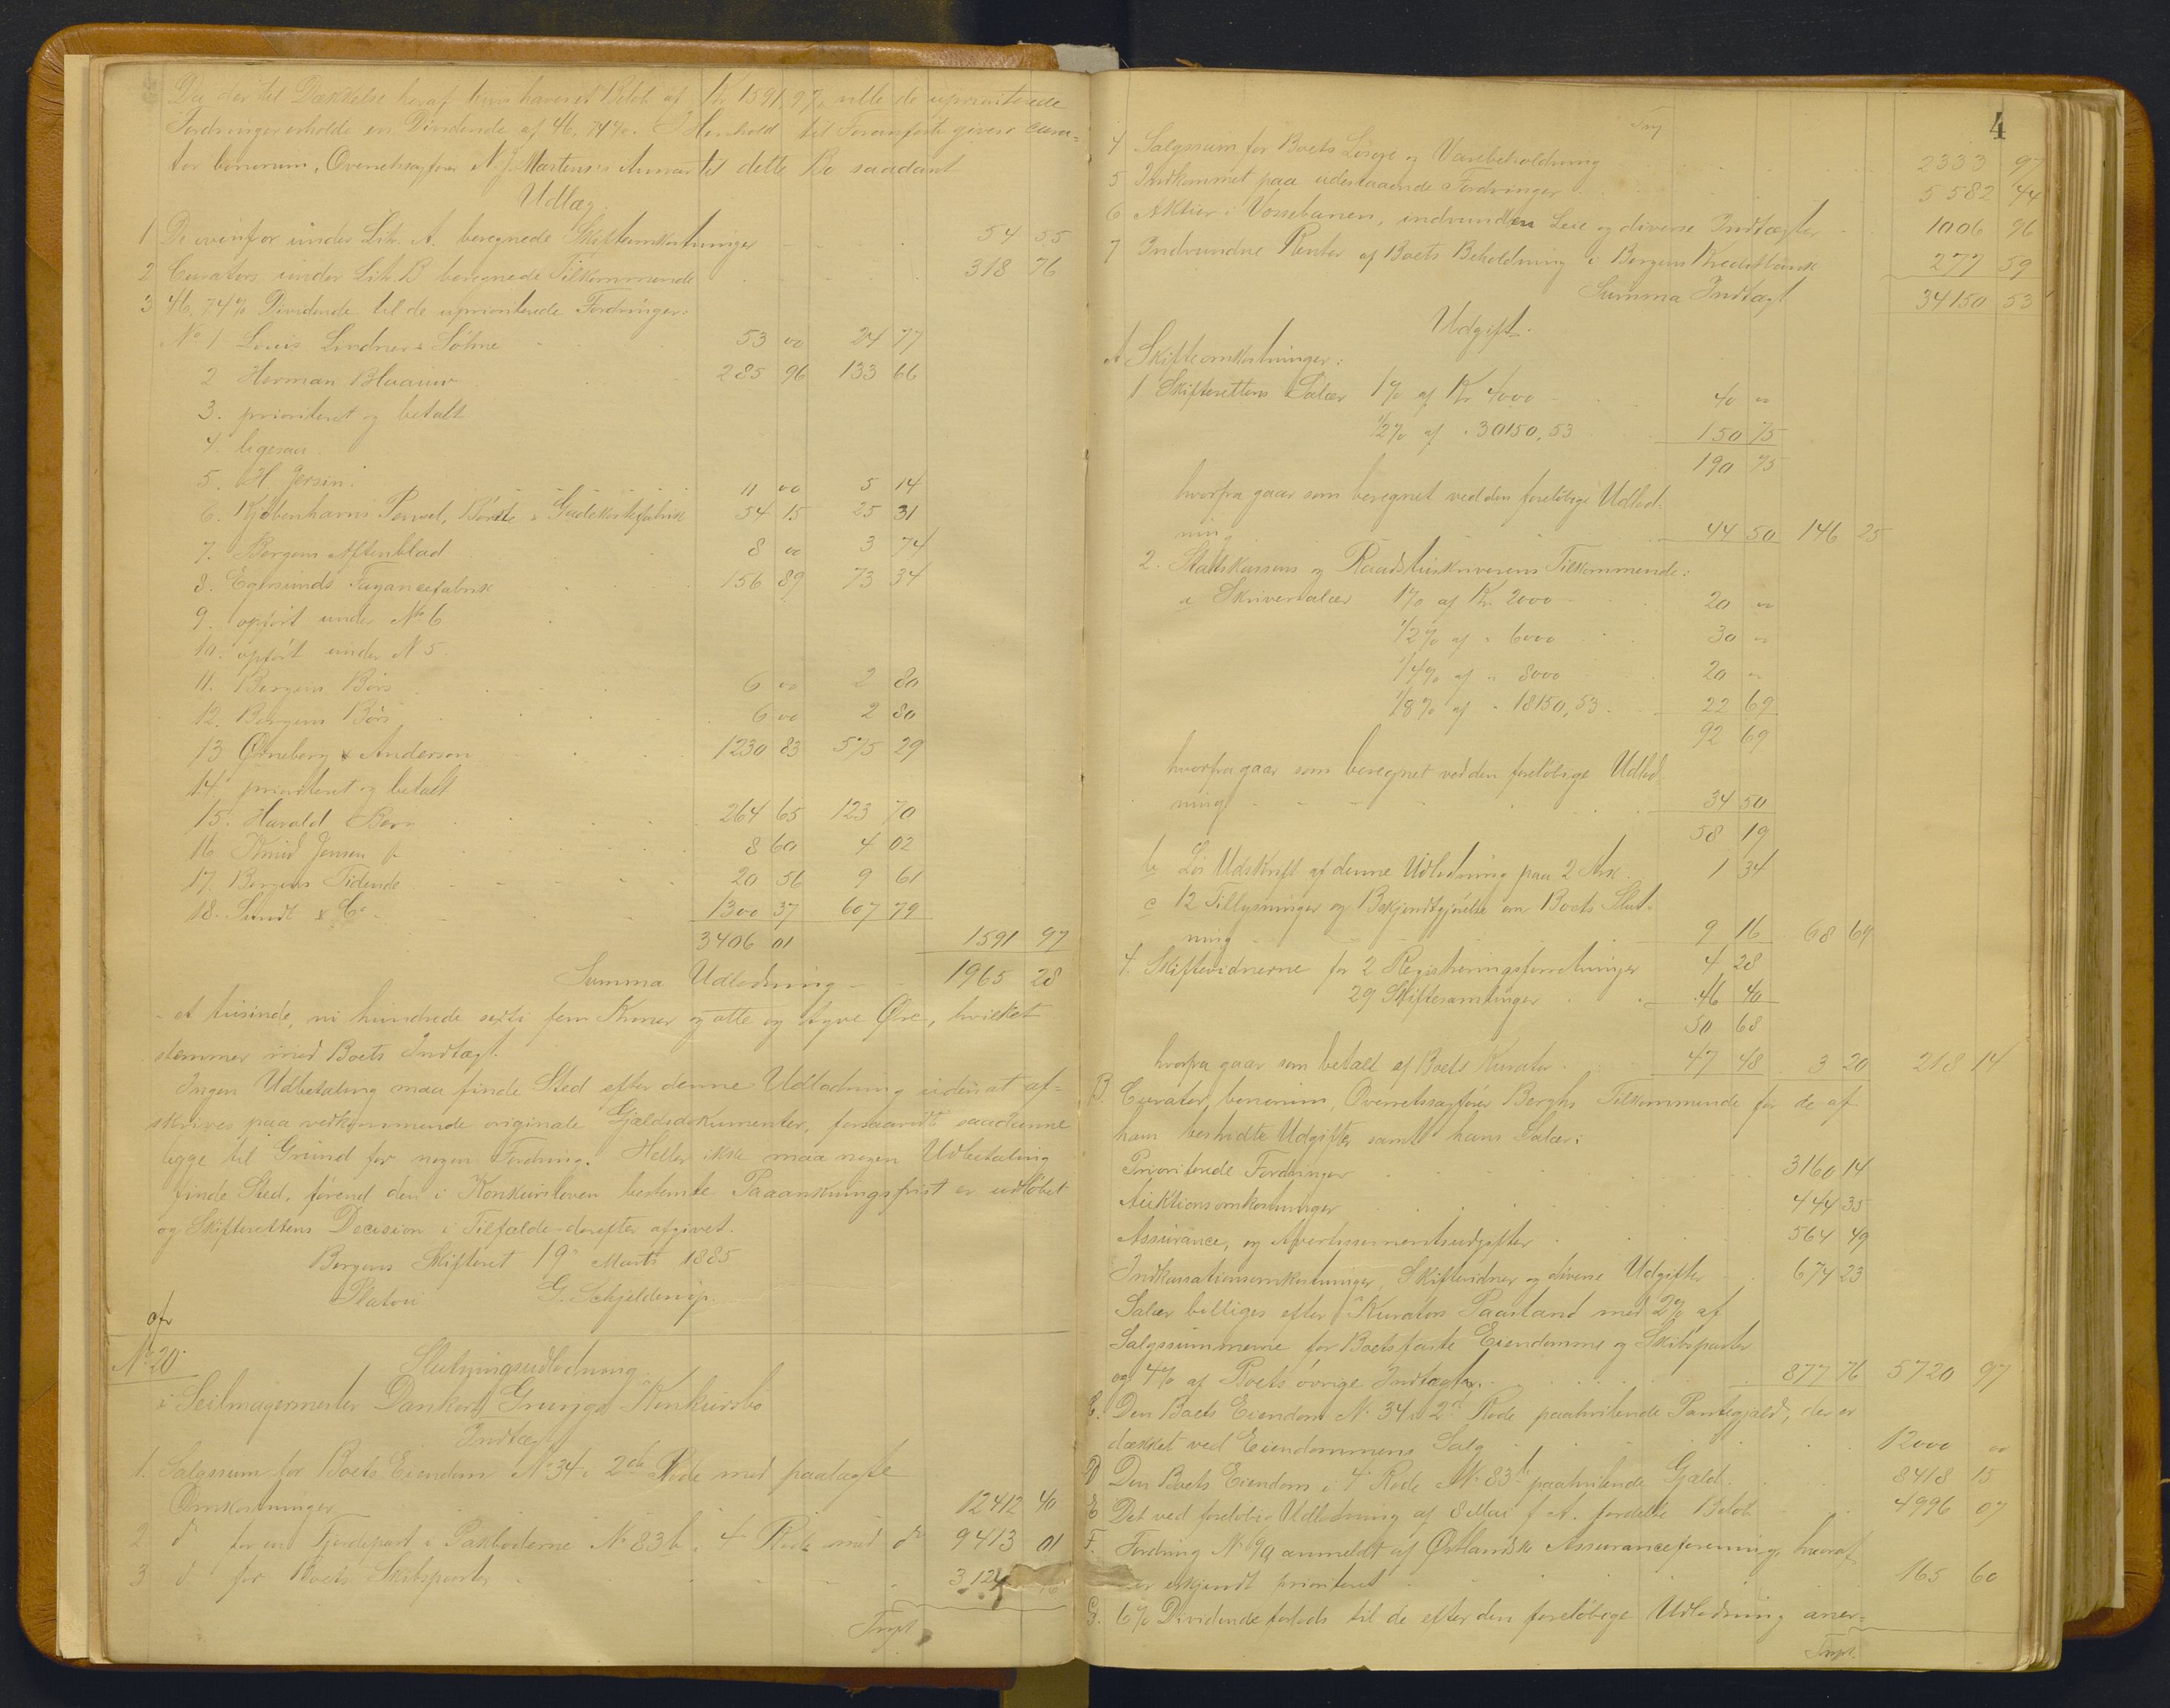 Da der til Dækkelse heraf kun haves et Beløb af Kr 1591,97, ville de uprioriterede
Fordringer erholde en Dividende af 46,74%. I Henhold til Foranførte gives cura-
tor bonorum, Overretssagfører A. J. Martens's Anvar til dette Bo saadant
Udlæg.
1 De ovenfor under Litr. A. beregnede Skifteomkostninger 54 55
2 Curators under Litr. B beregnede Tilkommende 318 76
3 46,74% Dividende til de uprioriterede Fordringer:
No 1 Louis Lindner & Söhne 53 00 24 77
2 Herman Blaauw 285 96 133 66
3. prioriteret og betalt
4. ligesaa
5. H. Jersin. 11 00 5 14
6. Kjøbenhavns Pensel, Börste & Gadekostefabrik 54 15 25 31
7. Bergens Aftenblad 8 00 3 74
8. Egersunds Fayancefabrik 156 89 73 34
9. opført under No 6
10. opført under N 5.
11. Bergens Børs 6 00 2 80
12. Bergens Børs 6 00 2 80
13 Ørneberg & Anderson 1230 83 575 29
14. prioriteret og betalt
15. Harald Berg 264 65 123 70
16 Knud Jensen 8 60 4 02
17. Bergens Tidende 20 56 9 61
18. Sundt & Co. 1300 37 607 79
3406 01 1591 97
Summa Udlodning 1965 28
- et tusinde, ni hundrede sexti fem Kroner og otte og tyve Øre, hvilket
stemmer med Boets Indtægt.
Ingen Udbetaling maa finde Sted efter denne Udlodning uden at af-
skrives paa vedkommende originale Gjældsdokumenter, forsaavidt saadanne
ligge til Grund for nogen Fordring. Heller ikke maa nogen Udbetaling
finde Sted, førend den i Konkursloven bestemte Paaankningsfrist er udløbet
og Skifterettens Decision i Tilfælde derefter afgivet.
Bergens Skifteret 19 Marts 1885
Platou G. Schjelderup.
No 20.
Slutningsudlodning
i Seilmagermester Dankert Grungs Konkursbo
Indtægt
1. Salgssum for Boets Eiendom No 34 i 2den Rode med paalagte
Omkostninger 12412 40
2 do for en Fjerdepart i Pakboderne No 83b i 4 Rode med do 9413 01
3 do for Boets Skibsparter 3124
Trspt
4
Trsp
4 Salgssum for Boets Løsøre og Varebeholdning 2333 97
5 Indkommet paa udestaaende Fordringer 5582 44
6 Aktier i Vossebanen, indvunden Leie og diverse Indtægter 1006 96
7 Indvundne Renter af Boets Beholdning i Bergens Kreditbank 277 59
Summa Indtægt 34150 53
Udgift.
A Skifteomkostninger:
1 Skifterettens Salær 1% af Kr 4000 40 "
1/2% af " 30150,53 150 75
190 75
hvorfra gaar som beregnet ved den foreløbige Udlod-
ning 44 50 146 25
2. Statskassens og Raadstueskriverens Tilkommende:
a Skriversalær 1% af Kr. 2000 20 "
1/2% af " 6000 30 "
1/4% af " 8000 20 "
1/8% af " 18150,53 22 69
92 69
hvorfra gaar som beregnet ved den foreløbige Udlod-
ning 34 50
58 19
b Løs Udskrift af denne Udlodning paa 2 Ark 1 34
c 12 Tillysninger og Bekjendtgjørelse om Boets Slut-
ning 9 16 68 69
4. Skiftevidnerne for 2 Registreringsforretninger 4 28
29 Skiftesamlinger 46 40
50 68
hvorfra gaar som betalt af Boets Kurator 47 48 3 20 218 14
B. Curator bonorum, Overretssagfører Berghs Tilkommende for de af
ham bestridte Udgifter samt hans Salær:
Prioriterede Fordringer 3160 14
Auktionsomkostninger 444 35
Assurance, og Avertissementsudgifter 564 49
Indkassationsomkostninger, Skiftevidner og diverse Udgifter 674 23
Salær billiges efter Kurators Paastand med 2% af
Salgssummerne for Boets faste Eiendomme og Skibsparter
og 4% af Boets øvrige Indtægter 877 76 5720 97
C. Den Boets Eiendom N. 34 i 2n Rode paahvilende Pantegjæld, der er
dækket ved Eiendommens Salg 12000 00
D Den Boets Eiendom i 4 Rode No 83b paahvilende Gjæld 8418 15
E Det ved foreløbig Udlodning af 8 Mai f. A. fordelte Beløb 4996 07
F. Fordring No 9a anmeldt af Østlandske Assuranceforening, hvoraf
er erkjendt prioriteret 165 60
G. 6% Dividende forlods til de efter den foreløbige Udlodning aner-
Trspt.